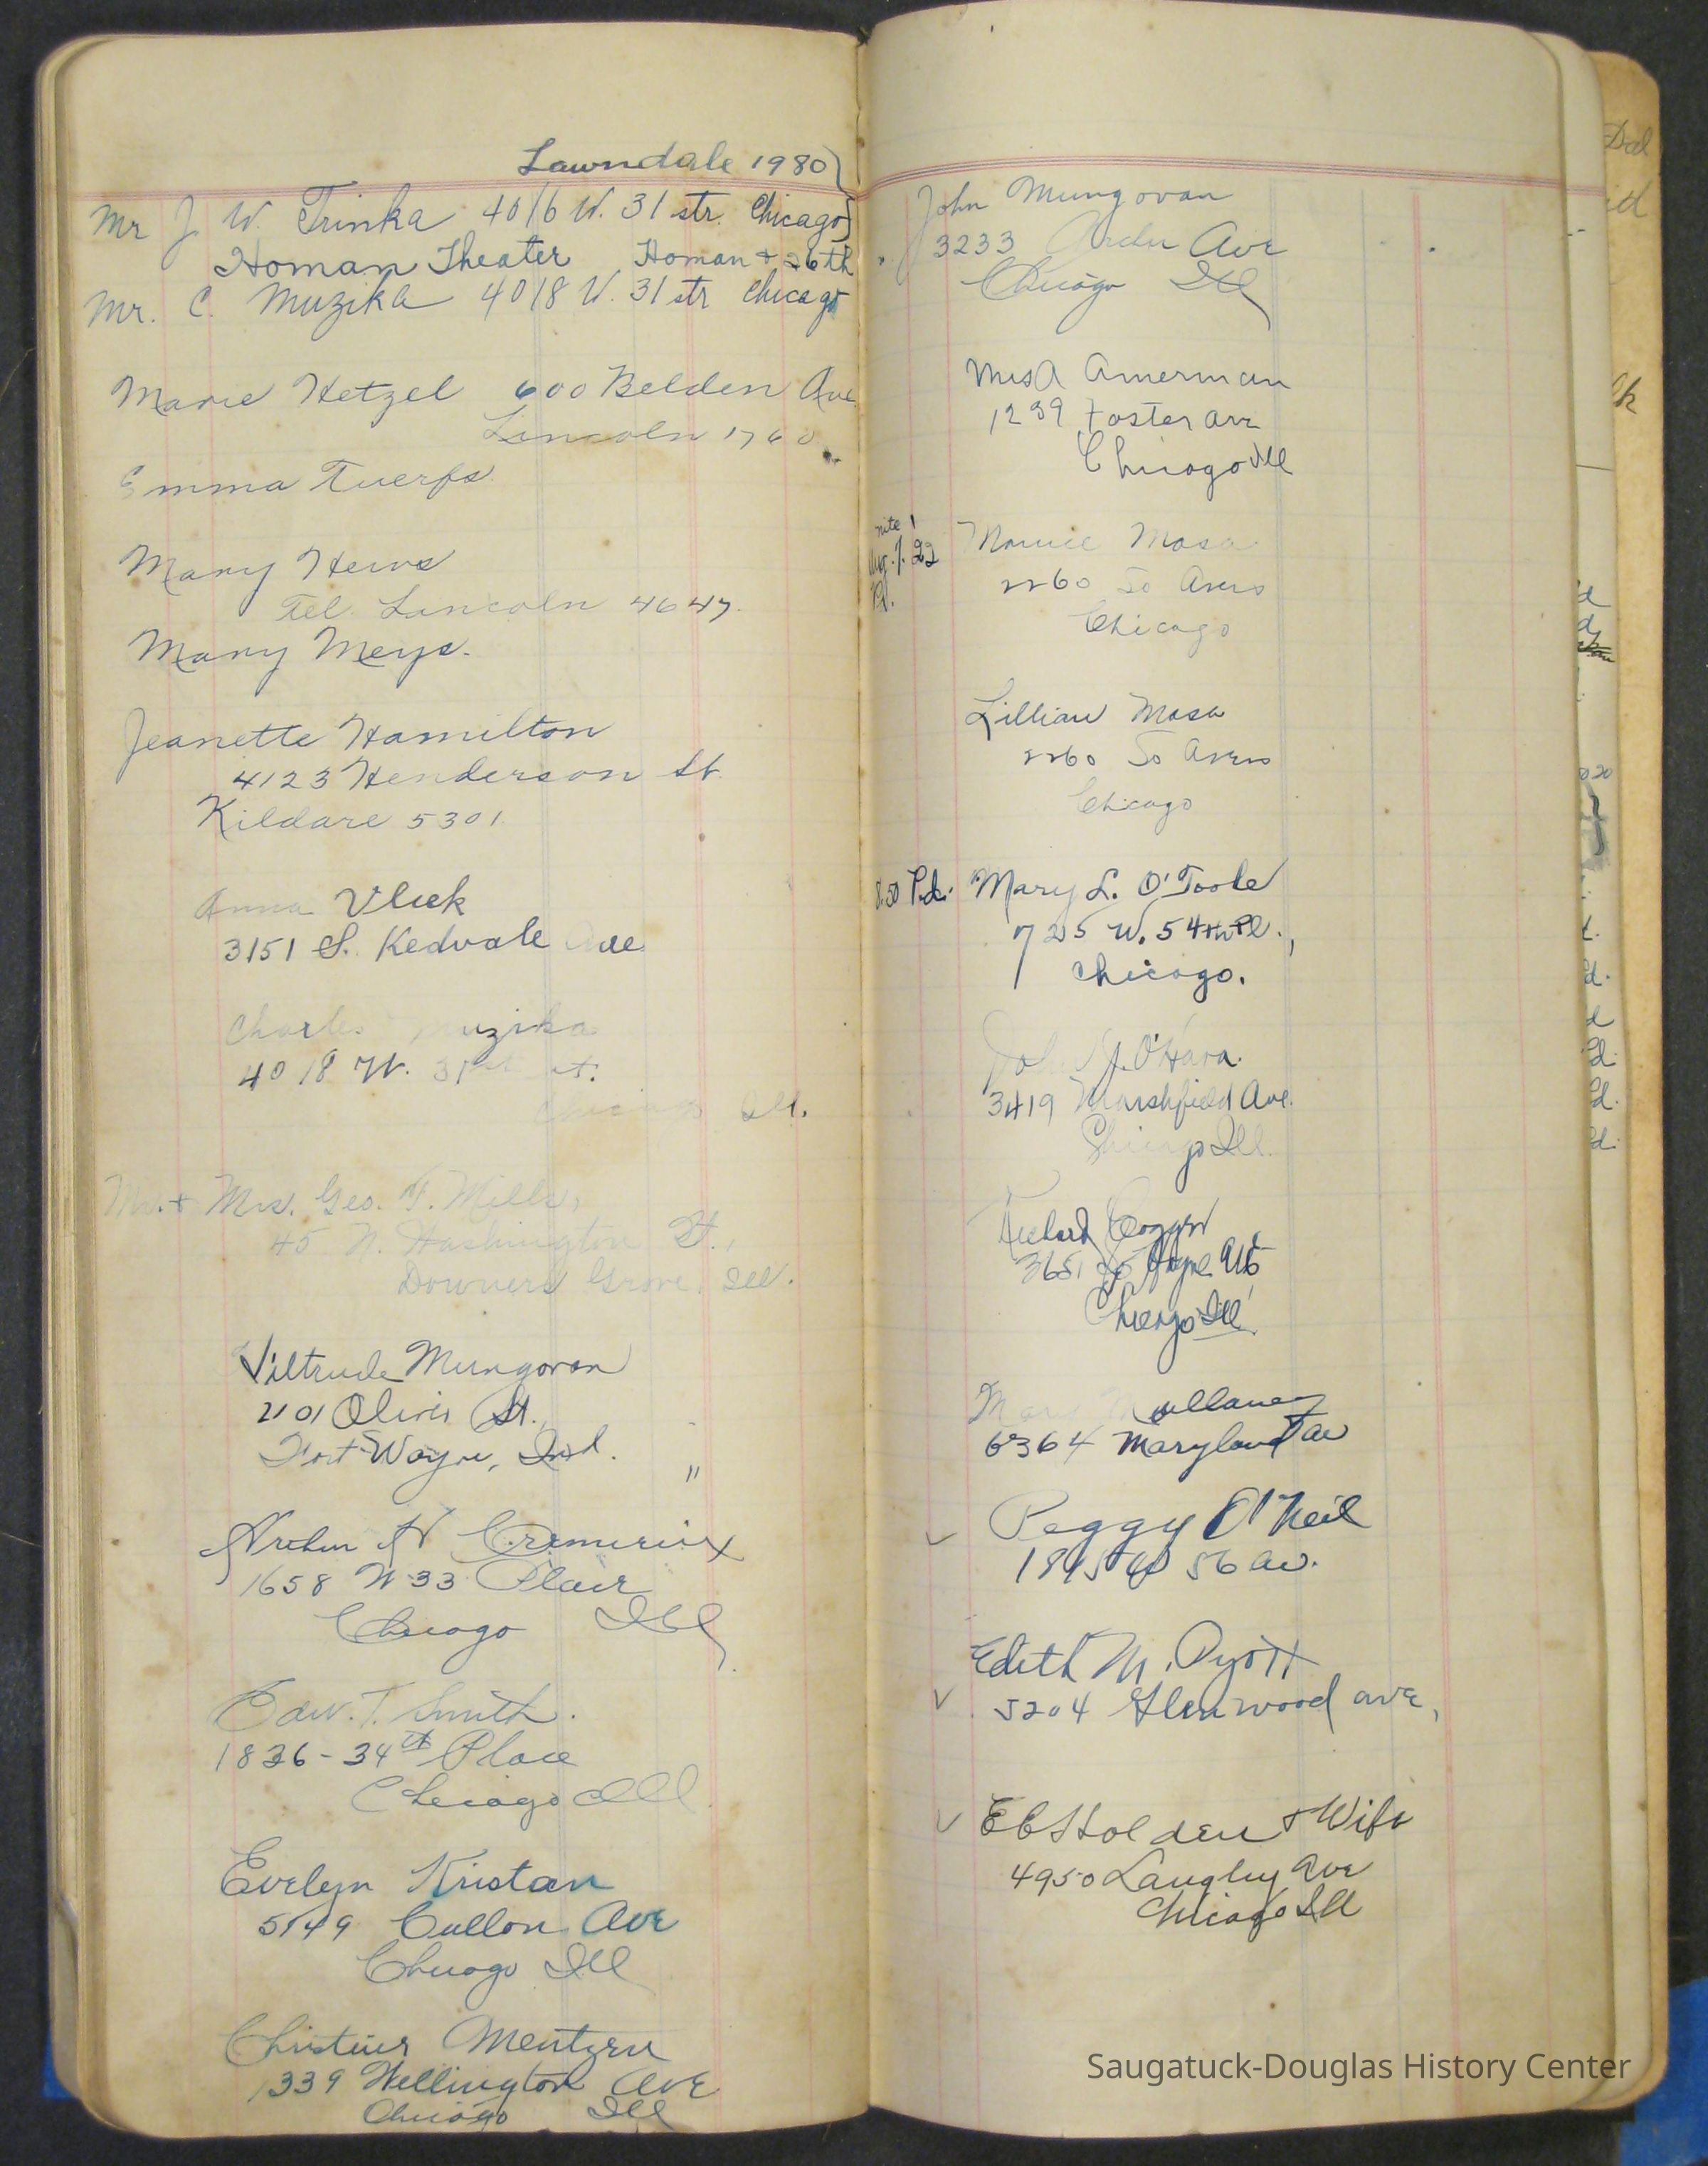 Lawndale 1980
Mr J W. Trinka 4016 W. 31 str. Chicago
Homan Theater Homan + 26th
Mr. C. Muzika 4018 W. 31 str Chicago
Marie Hetzel 600 Belden Ave
Lincoln 1760
Emma
Mary
Tel. Lincoln 4647.
Mary Meys.
Jeanette Hamilton
4123 Henderson St.
Kildare 5301
Anna Vlcek
3151 S. Kedvale Ave
Charles Muzika
4018 W. 31st st.
Chicago Ill.
Mr. + Mrs. Geo. F. Mills,
45 N. Washington St.,
Downers Grove, Ill.
Mungovan
2101 Oliver St.
Fort Wayne, Ind.
"
1658 W 33 Place
Chicago Ill
Edw. T. Smith.
1836 - 34th Place
Chicago Ill
Evelyn Kristan
5149 Cullon Ave
Chicago Ill
Mentzen
1339 Wellington Ave
Chicago Ill
John Mungovan
3233 Archer Ave
Chicago Ill
Mrs A Amerman
1239 Foster ave
Chicago Ill
nite 1
Masa
2260 So Avers
Chicago
Lillian Masa
2260 So Avers
Chicago
8.50 Pd. Mary L. O'Toole
725 W. 54th Pl.,
Chicago.
John J. O'Hara.
3419 Marshfield Ave.
Chicago Ill.
Richard
3651 So
Chicago Ill.
Mary Mullaney
6364 Maryland av
Peggy O'Neil
56 av.
Edith M. Pyott
5204 Glenwood ave,
E C Holden + Wife
4950 Langley Ave
Chicago Ill
Saugatuck-Douglas History Center